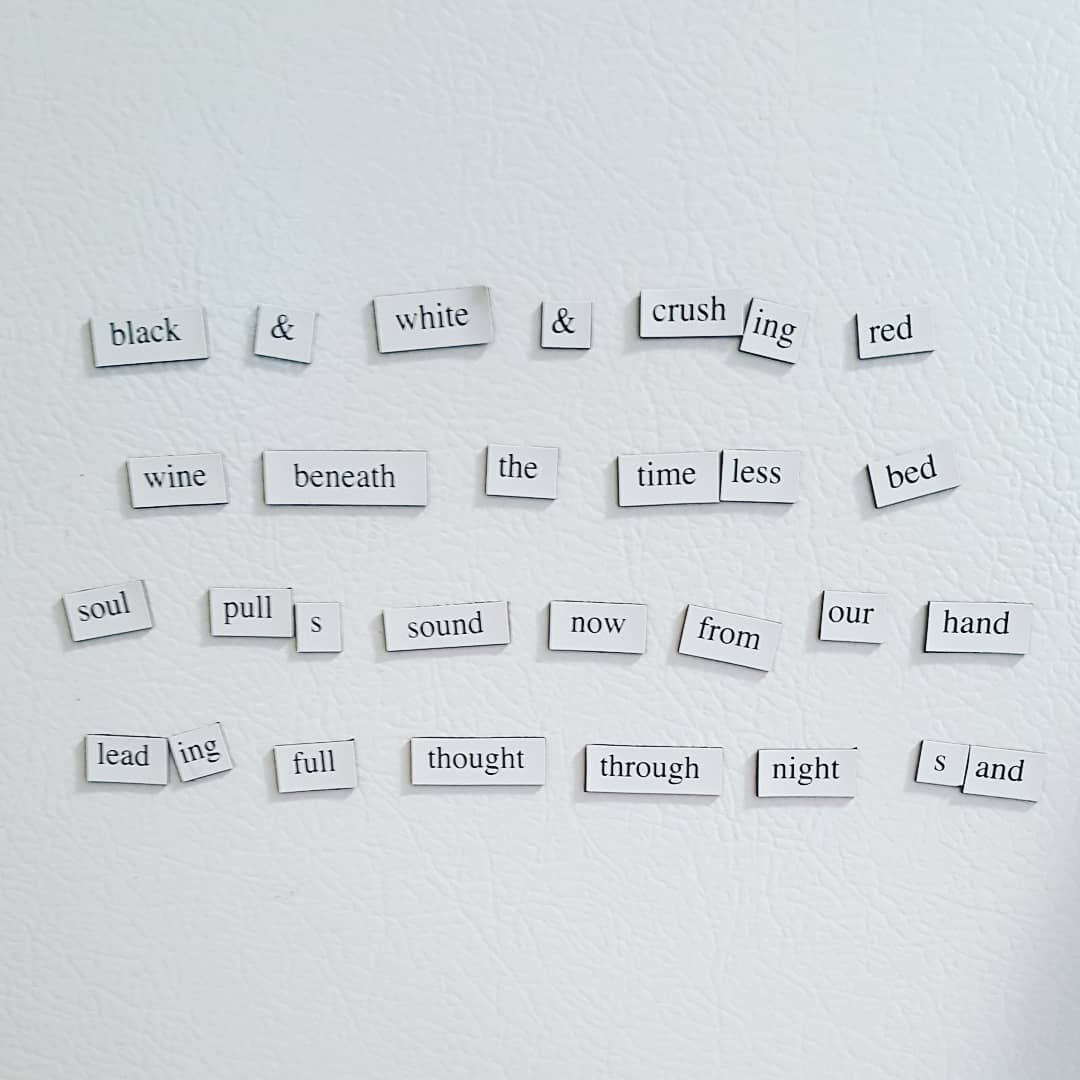 black & white & crushing red
wine beneath the timeless bed
soul pulls sound now from our hand
leading full thought through night sand